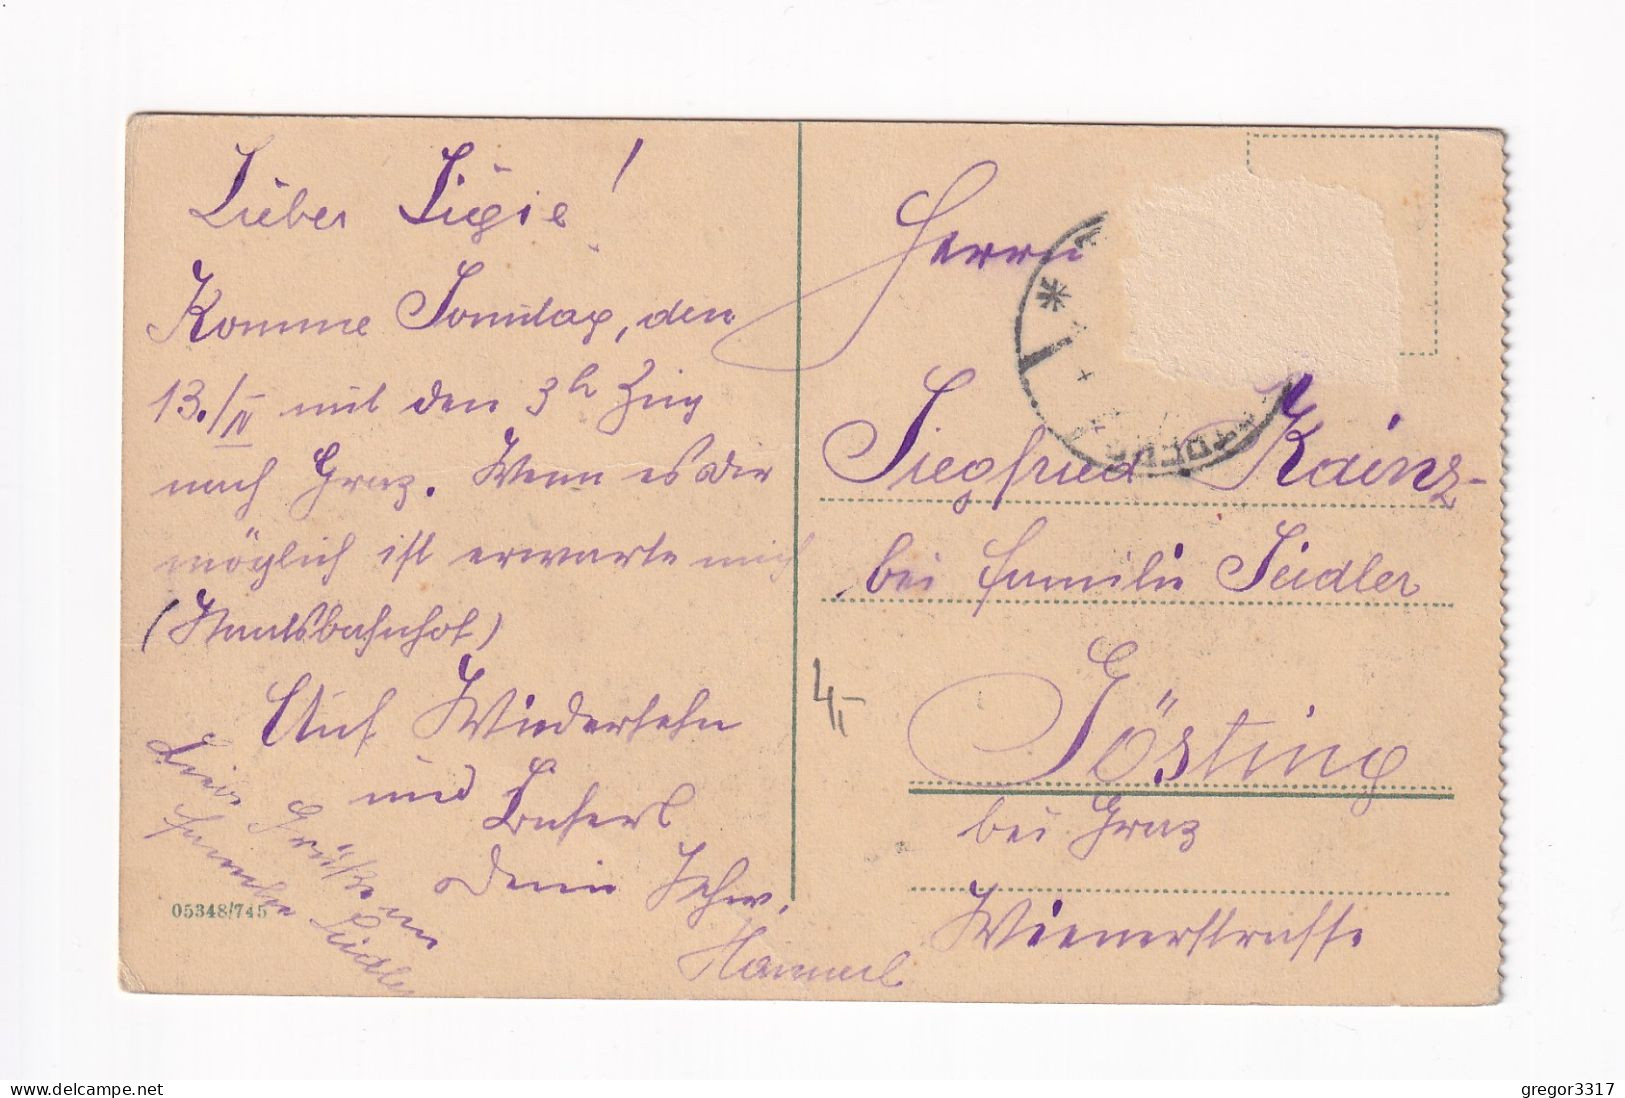 Lieber Siegie!
Komme Sonntag, den
13./IV mit den 3h Zug
nach Graz. Wenn es dir
möglich ist erwarte mich
(Staatsbahnhof)
Auf Wiedersehn
und Busserl
Deine Schw.
Hannerl
Liebe Grüße an
Familie Seidler
05348/745
Herrn
Siegfried Kainz
bei Familie Seidler
Gösting
bei Graz
Wienerstrasse
4,-
delcampe.net
gregor3317